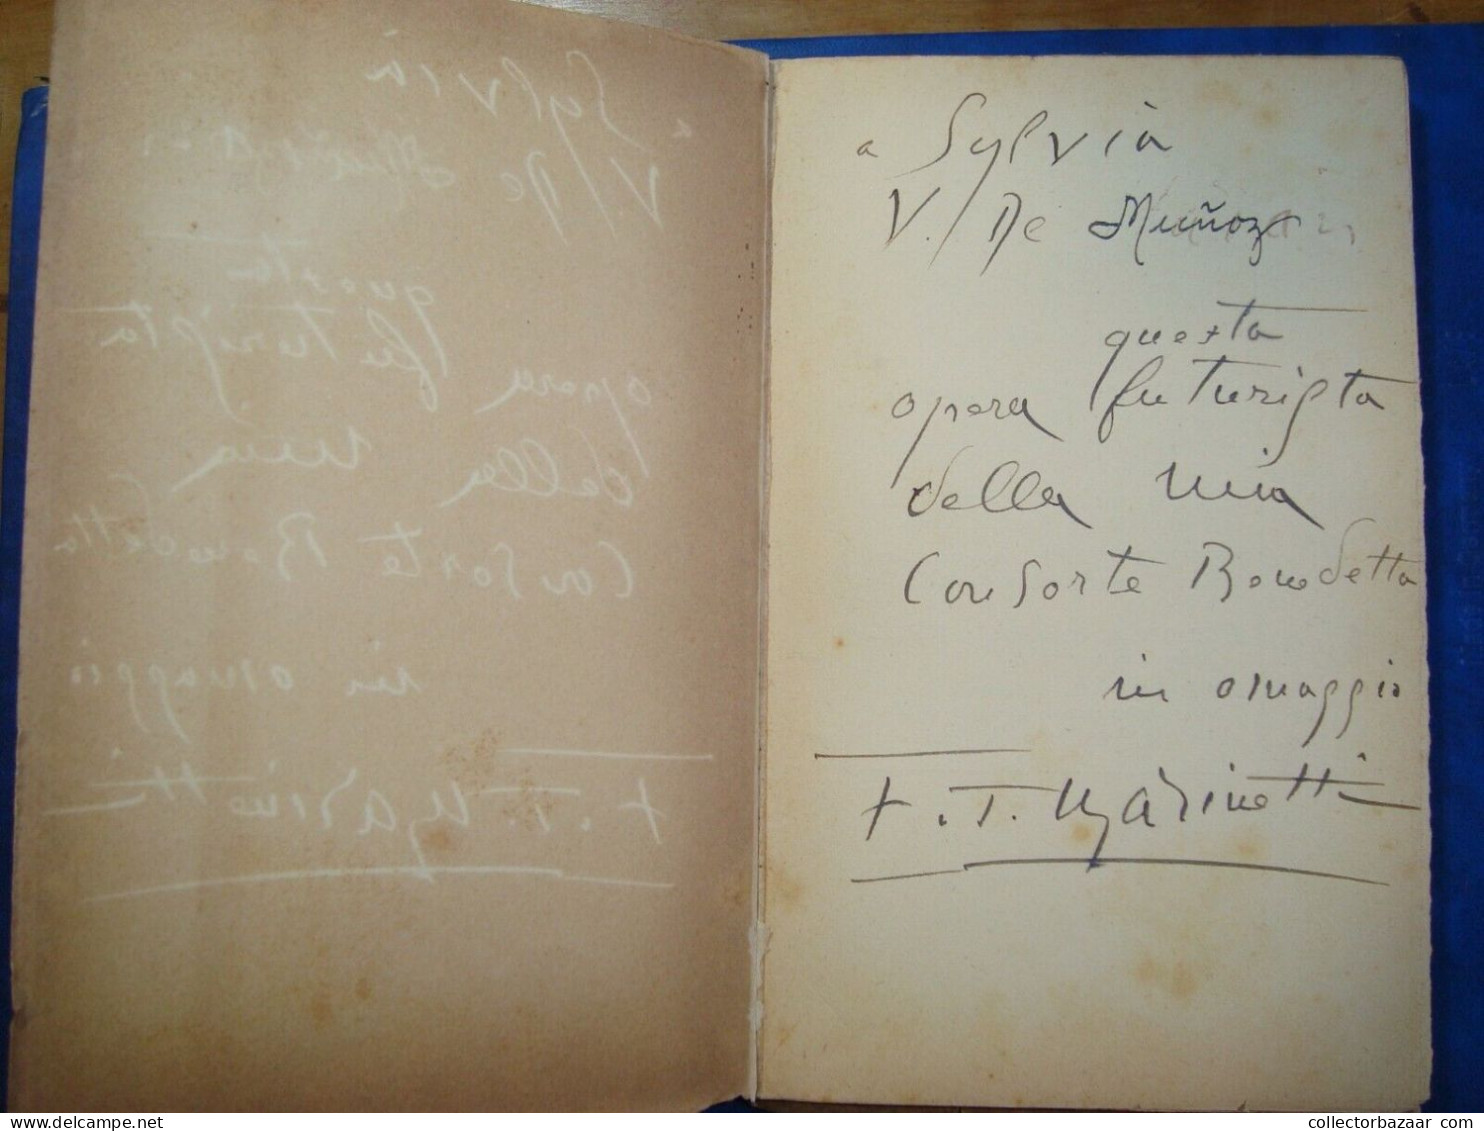 a Sylvia
V. De Muñoz
questa
opera futurista
della mia
Consorte Benedetta
in omaggio
F. T. Marinetti
collectorbazaar.com